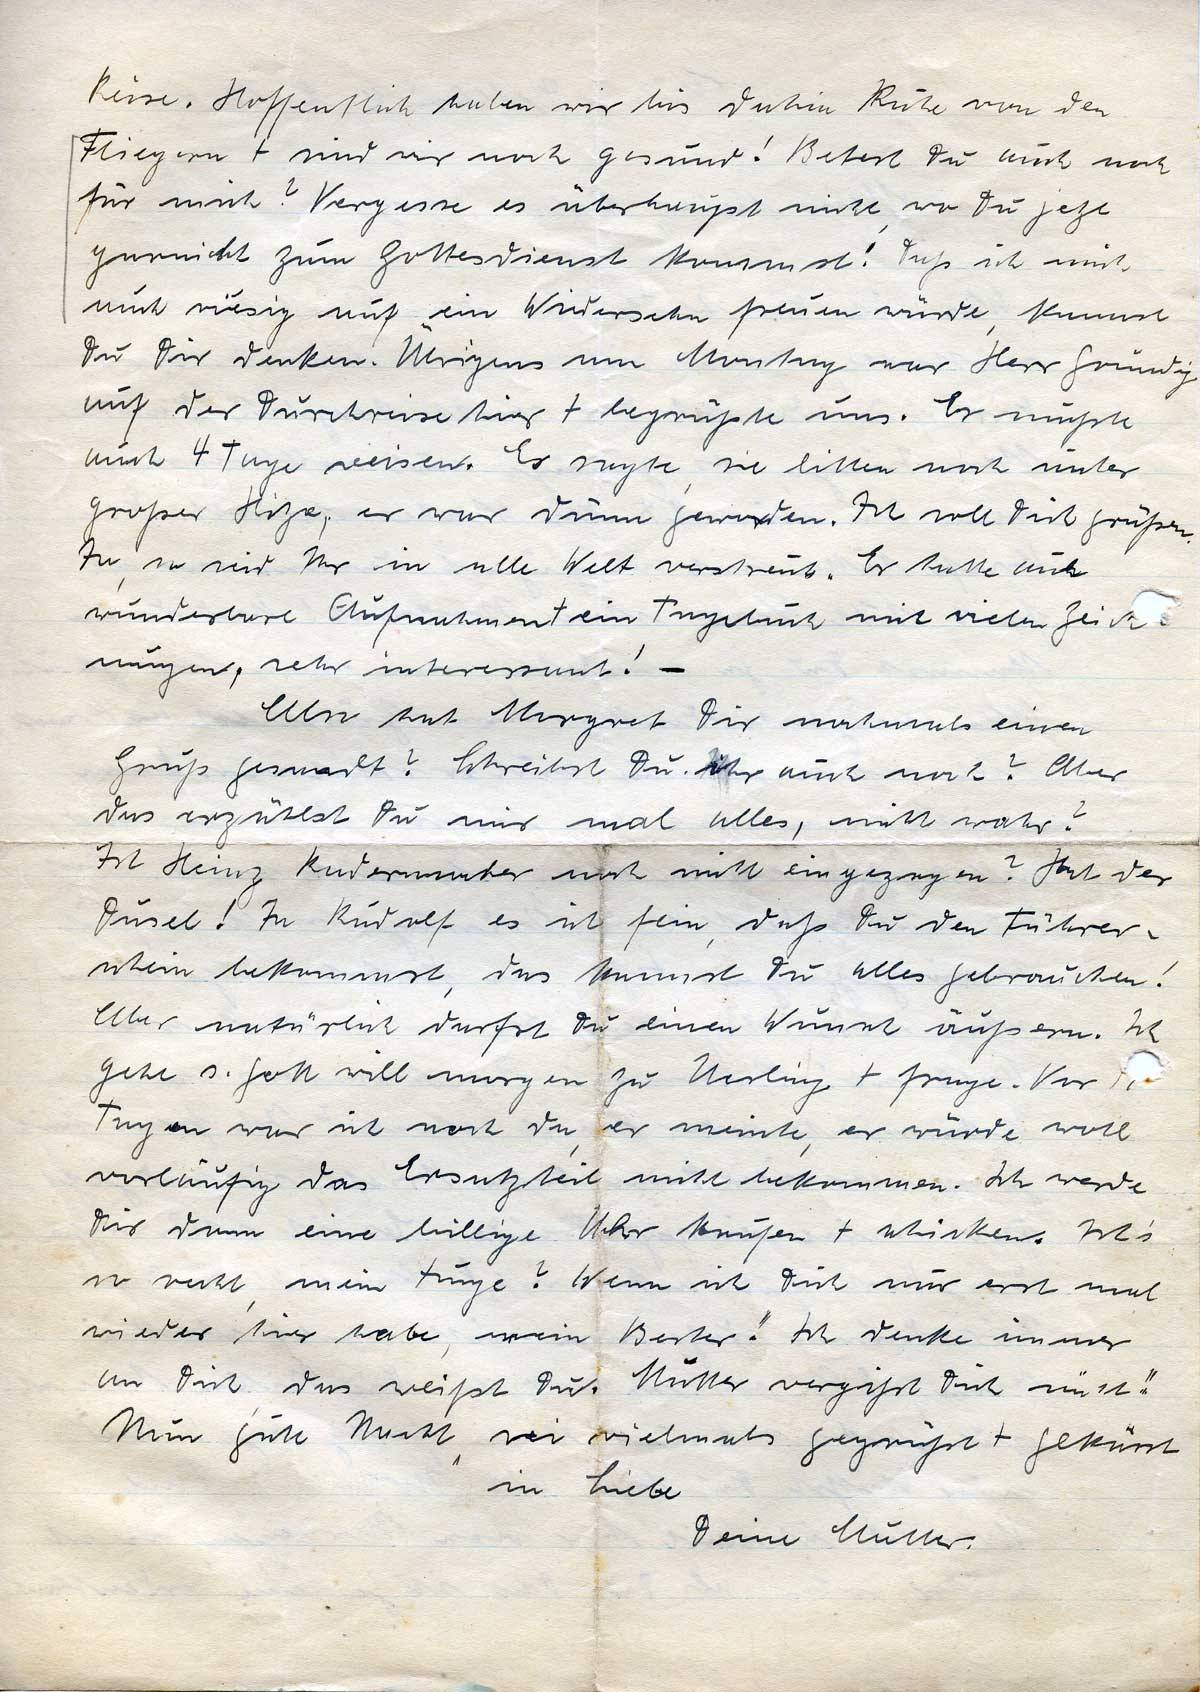 Reise. Hoffentlich haben wir bis dahin Ruhe von den
Fliegern + sind wir noch gesund! Betest Du auch noch
für mich? Vergesse es überhaupt nicht, wo Du jetzt
garnicht zum Gottesdienst kommst! Daß ich mich
auch riesig auf ein Wiedersehn freuen würde, kannst
Du Dir denken. Übrigens am Montag war Herr Gründig
auf der Durchreise hier + begrüßte uns. Er mußte
auch 4 Tage reisen. Er sagte, sie litten noch unter
großer Hitze, er war dünn geworden. Ich soll Dich grüßen.
Ja, so seid Ihr in alle Welt verstreut. Er hatte auch
wunderbare Aufnahmen + ein Tagebuch mit vielen Zeich-
nungen, sehr interessant! –
Also hat Margret Dir nochmals einen
Gruß gesandt? Schreibst Du ihr auch noch? Aber
das erzählst Du mir mal alles, nicht wahr?
Ist Heinz Radermacher noch nicht eingezogen? Hat der
Dusel! Ja Rudolf es ist fein, daß Du den Führer-
schein bekommst, das kannst Du alles gebrauchen!
Aber natürlich darfst Du einen Wunsch äußern. Ich
gehe s. Gott will morgen zu + frage. Vor
Tagen war ich noch da, er meinte, er würde wohl
vorläufig das Ersatzteil nicht bekommen. Ich werde
Dir dann eine billige Uhr kaufen + schicken. Ist's
so recht, mein Junge? Wenn ich Dich nur erst mal
wieder hier habe, mein Bester! Ich denke immer
an Dich, das weißt Du. Mutter vergißt Dich nicht!
Nun gute Nacht, sei vielmals gegrüßt + geküsst
in Liebe
Deine Mutter.